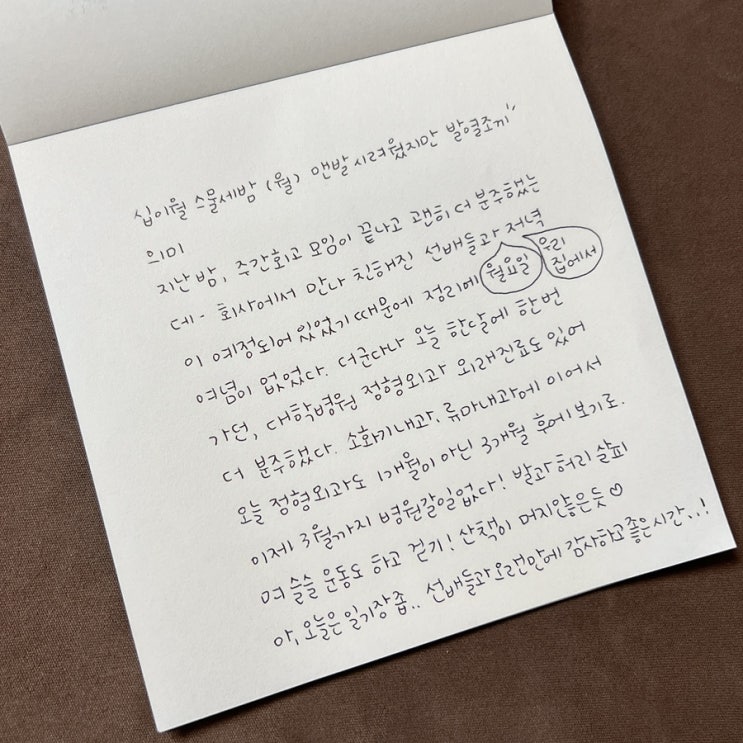 십이월 스물세밤 (월) 맨발 시려웠지만 발열조끼
의미
지난 밤, 주간회고 모임이 끝나고 괜히 더 분주했는
데- 회사에서 만나 친해진 선배들과 저녁
이 예정되어 있었기 때문에 정리에 월요일 우리 집에서
여념이 없었다. 더군다나 오늘 한달에 한번
가던, 대학병원 정형외과 외래진료도 있어
더 분주했다. 소화기내과, 류마내과에 이어서
오늘 정형외과도 1개월이 아닌 3개월 후에 보기로.
이제 3월까지 병원갈일없다! 발과 허리 살피
며 슬슬 운동도 하고 걷기! 산책이 머지않은듯♡
아, 오늘은 일기장 좁.. 선배들과 오랜만에 감사하고 좋은시간..!